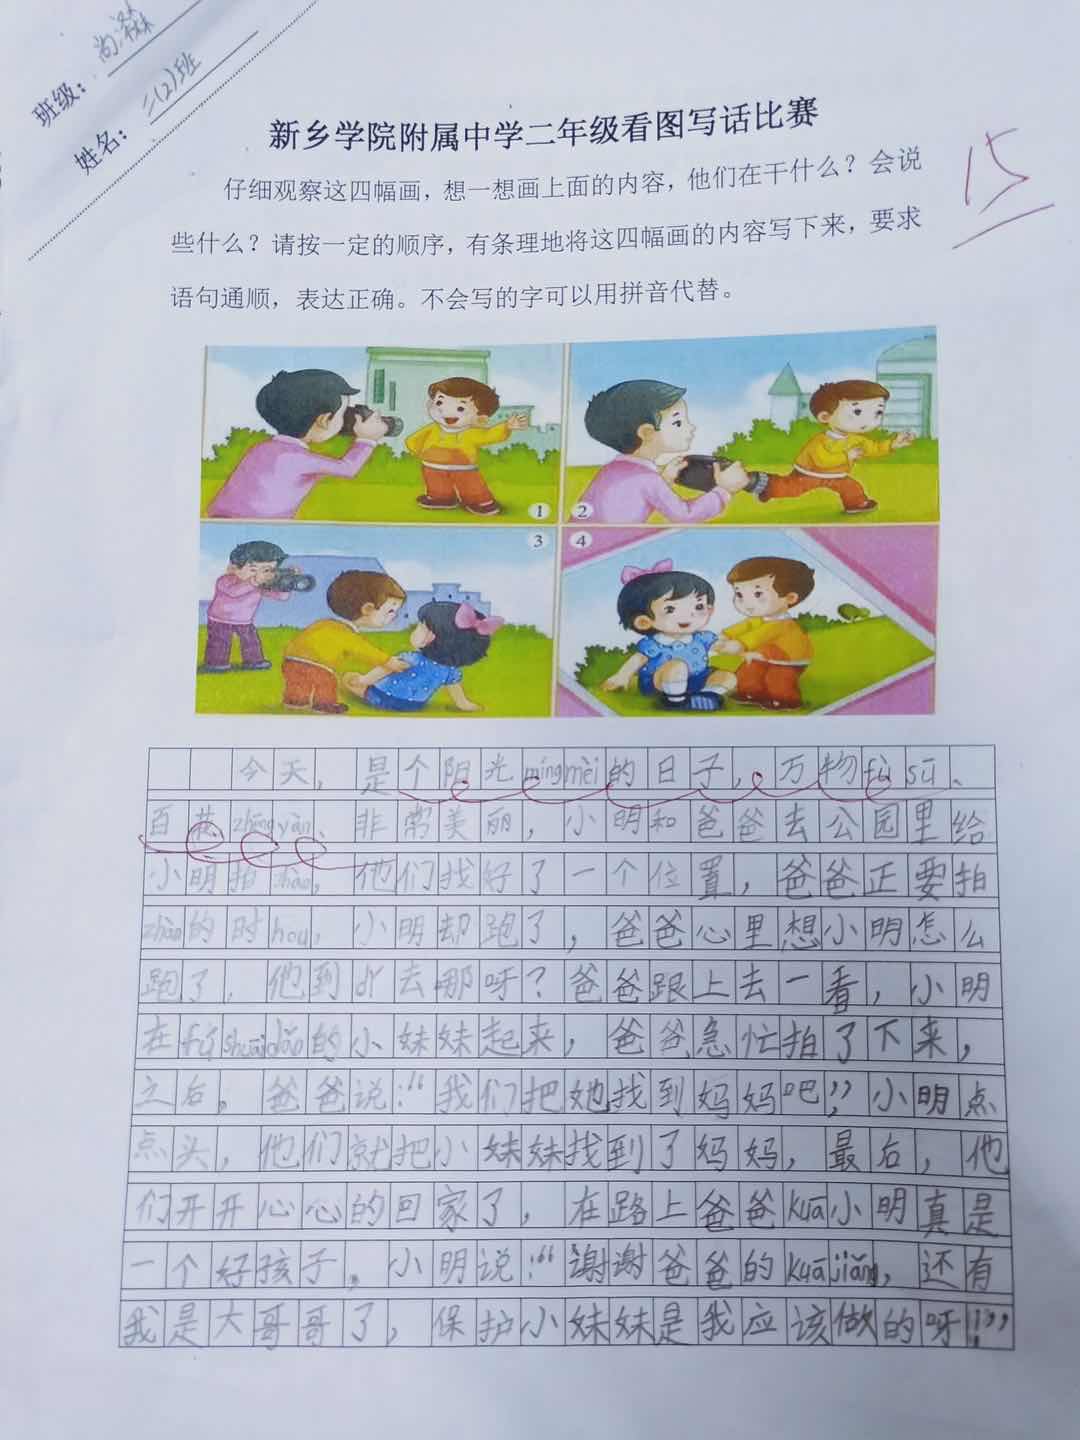 班级：尚泽霖
姓名：二(2)班
新乡学院附属中学二年级看图写话比赛
15
仔细观察这四幅画，想一想画上面的内容，他们在干什么？会说
些什么？请按一定的顺序，有条理地将这四幅画的内容写下来，要求
语句通顺，表达正确。不会写的字可以用拼音代替。
1
2
3
4
今天，是个阳光míngmèi的日子，万物fù sū、
百花zhēngyàn、非常美丽，小明和爸爸去公园里给
小明拍zhào，他们找好了一个位置，爸爸正要拍
zhào的时hou，小明却跑了，爸爸心里想小明怎么
跑了，他到nǎ去那呀？爸爸跟上去一看，小明
在fú shuāidǎo的小妹妹起来，爸爸急忙拍了下来，
之后，爸爸说：“我们把她找到妈妈吧”，小明点
点头，他们就把小妹妹找到了妈妈，最后，他
们开开心心的回家了，在路上爸爸kuā小明真是
一个好孩子。小明说：“谢谢爸爸的kuājiǎng，还有
我是大哥哥了，保护小妹妹是我应该做的呀！”